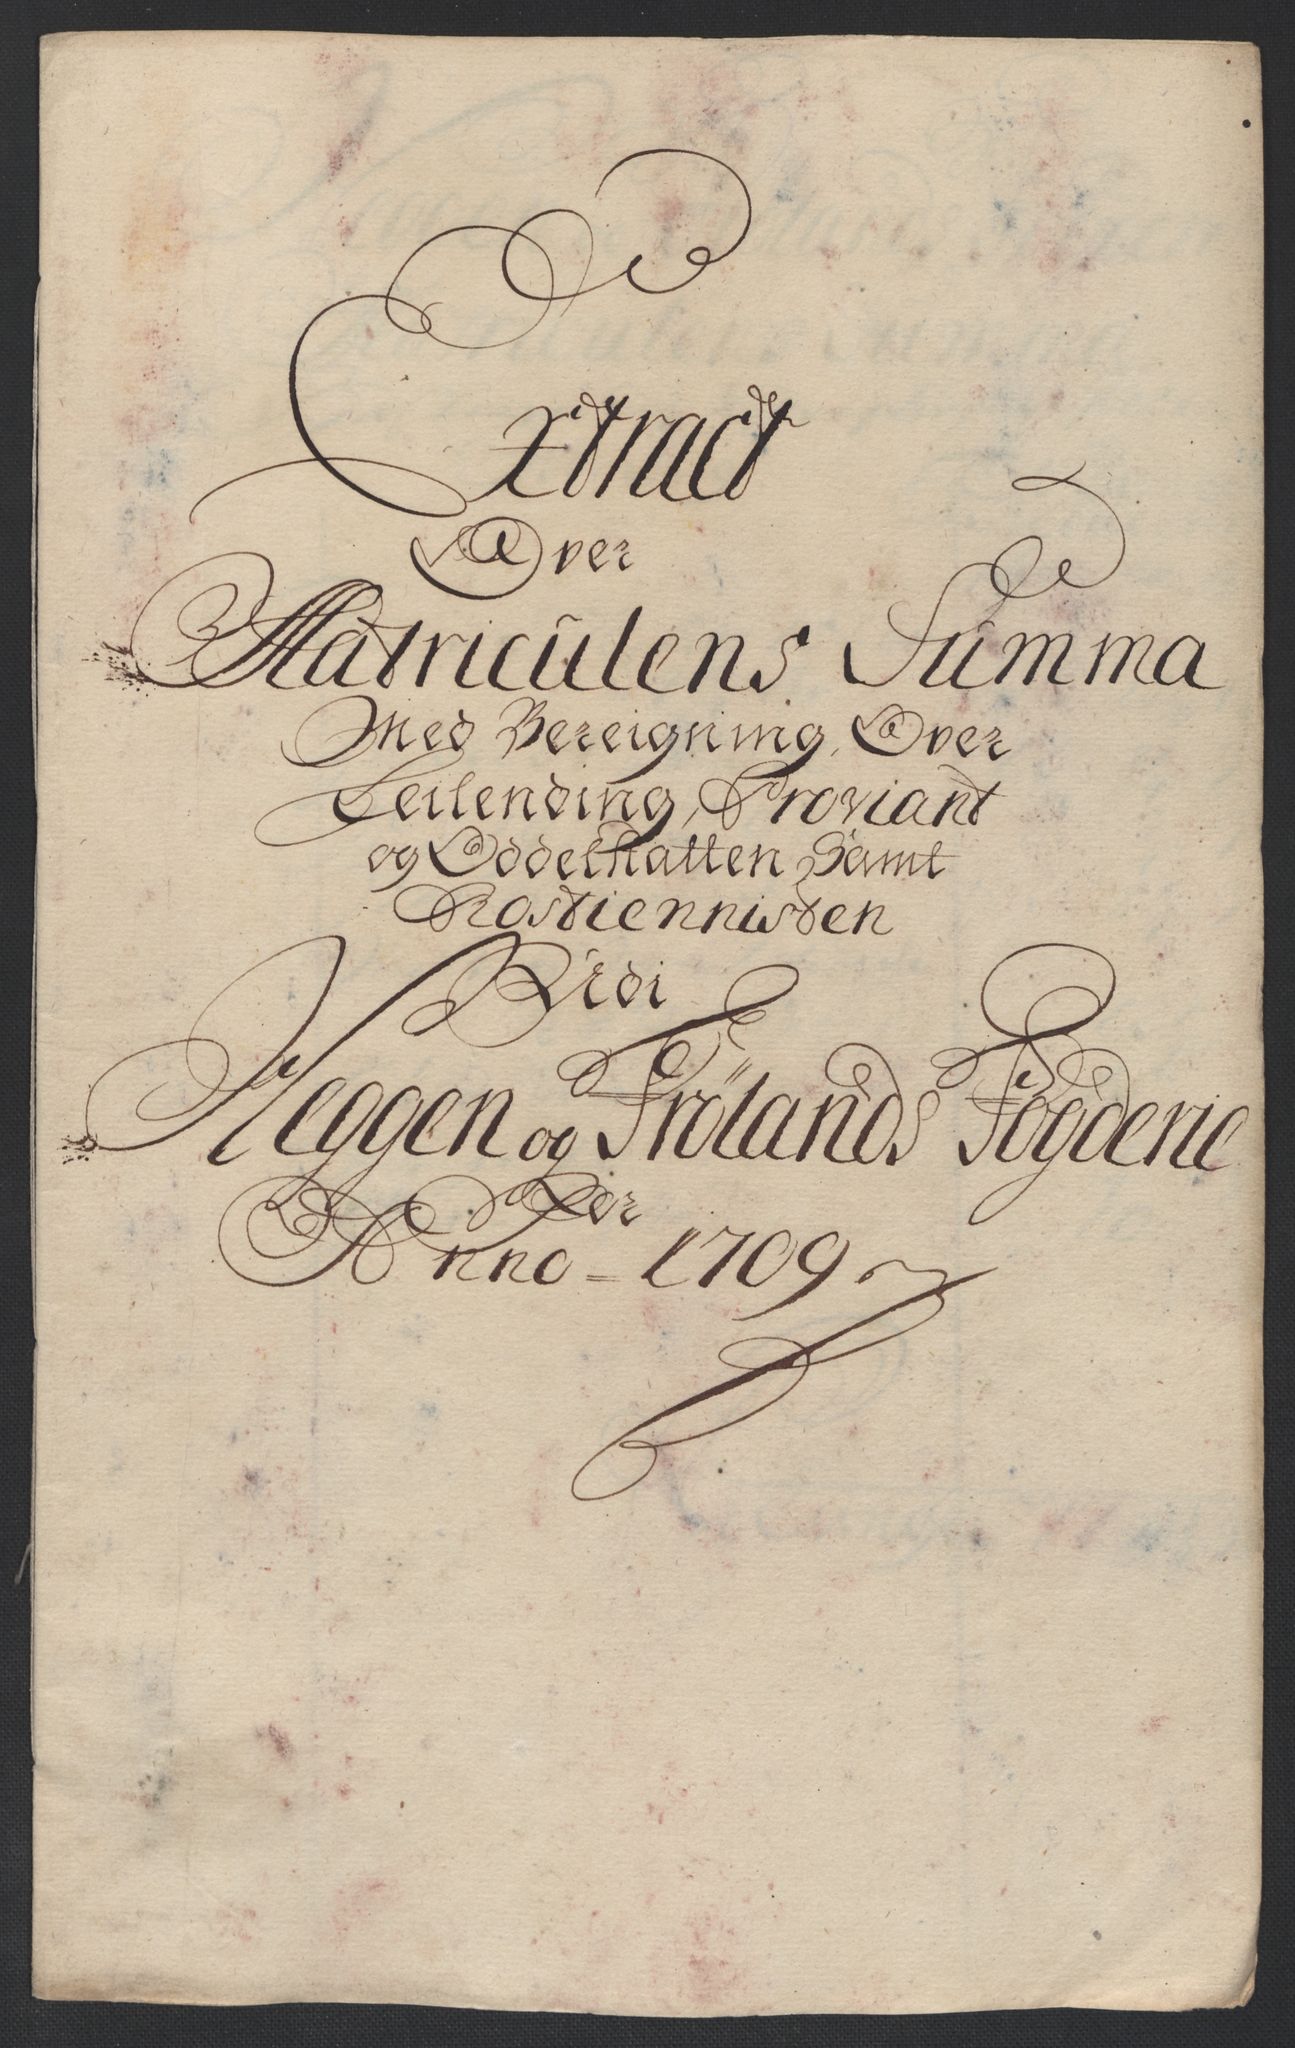 Extract
Over
Matriculens Summa
Med Bereigning, Over
Leilending, Proviant
og Oddelskatten Samt
Rostiennisten
Udi
Heggen og Frölands Fogderie
Per
Anno = 1709